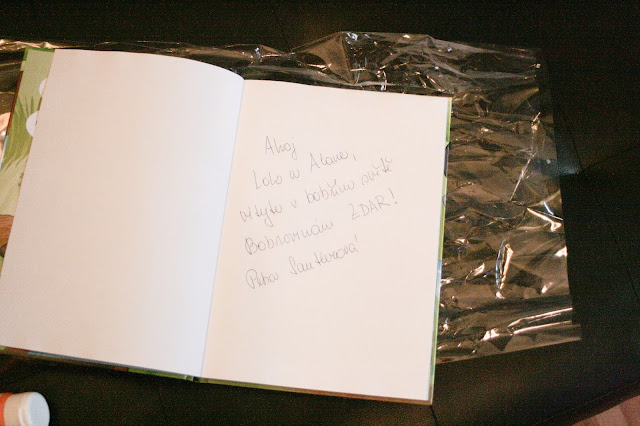 Ahoj
Lolo a Alano,
vítejte v bobřím světě
Bobrovinám ZDAR!
Petra Santarová